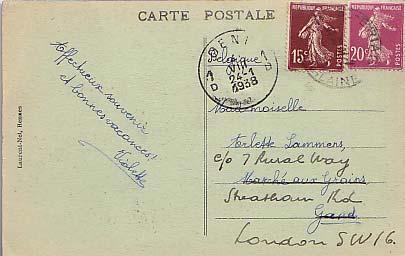 CARTE POSTALE
Affectueux souvenir
et bonnes vacances!
Violette
Laurent-Nel, Rennes
GENT
24-
1933
RÉPUBLIQUE FRANÇAISE
15c
POSTES
RÉPUBLIQUE FRANÇAISE
20c
POSTES
Belgique
Mademoiselle
Arlette Lammers,
c/o 7 Rural Way
Marché aux Grains
Streatham Rd
Gand
London SW16.